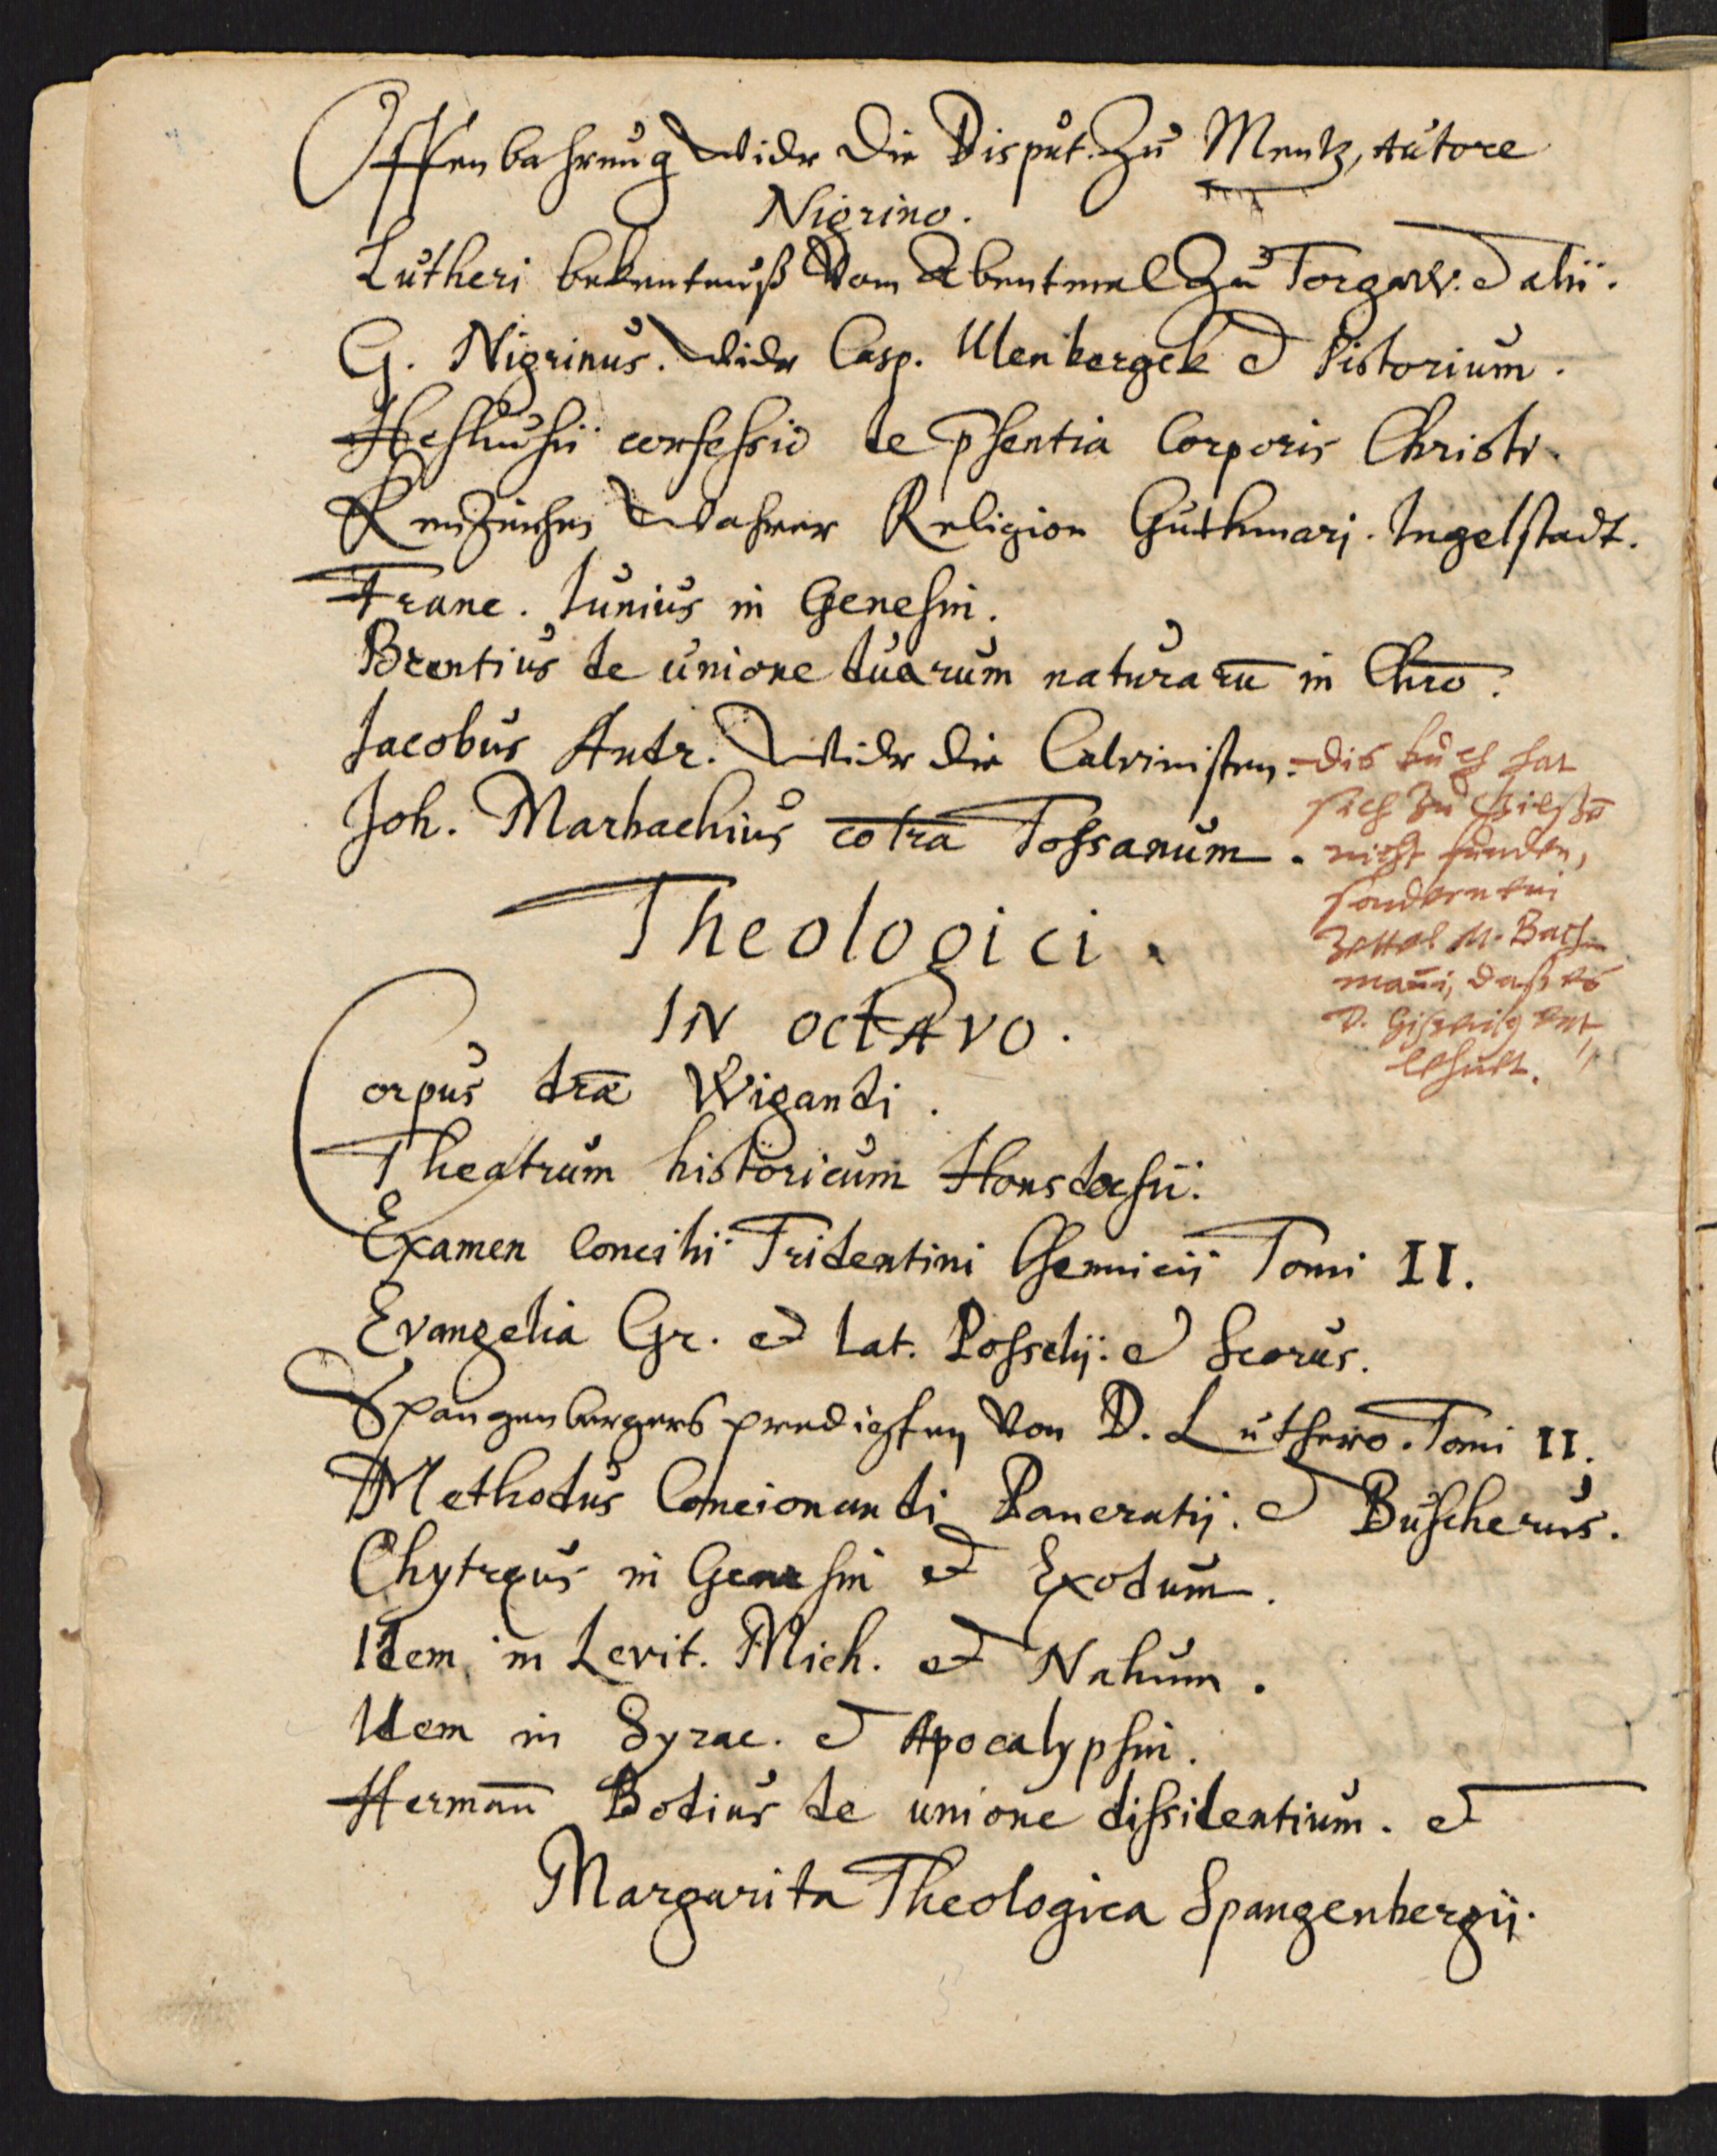 Offenbahrung widr die Disput. Zu Mentz, Autore
Nigrino.
Lutheri bekentnuß Vom Abentmal Zu Torgaw. et alii.
G. Nigrinus. widr Casp. Ulenbergek et Pistorium.
Heshusii confessio de psentia Corporis Christi.
Kenzeichen wahrer Religion Guthmari. Ingelstadt.
Franc. Junius in Genesin.
Brentius de unione duarum naturarū in Chrō.
Jacobus Andr. widr die Calvinisten.
Joh. Marbachius cōtra Tossanum.
dis buch hat
sich zu
nicht funden,
sondern ein
Zettel M. Bach-
mañi, daß es
D. ent-
lehnet.
Theologici.
IN OCTAVO.
Corpus dræ Wigandi.
Theatrum historicum Honsdorfii.
Examen Concilii Tridentini Chemnicii Tomi II.
Evangelia Gr. et Lat. Posselij. et Scorus.
Spangenbergers predigten Von D. Luthero. Tomi II.
Methodus Concionandi Pancratij. et Buscherus.
Chytreus in Genesin et Exodum.
Idem in Levit. Mich. et Nahum.
Idem in Syrac. et Apocalypsin.
Hermañ Bodius de unione dissidentium. et
Margarita Theologica Spangenbergij.